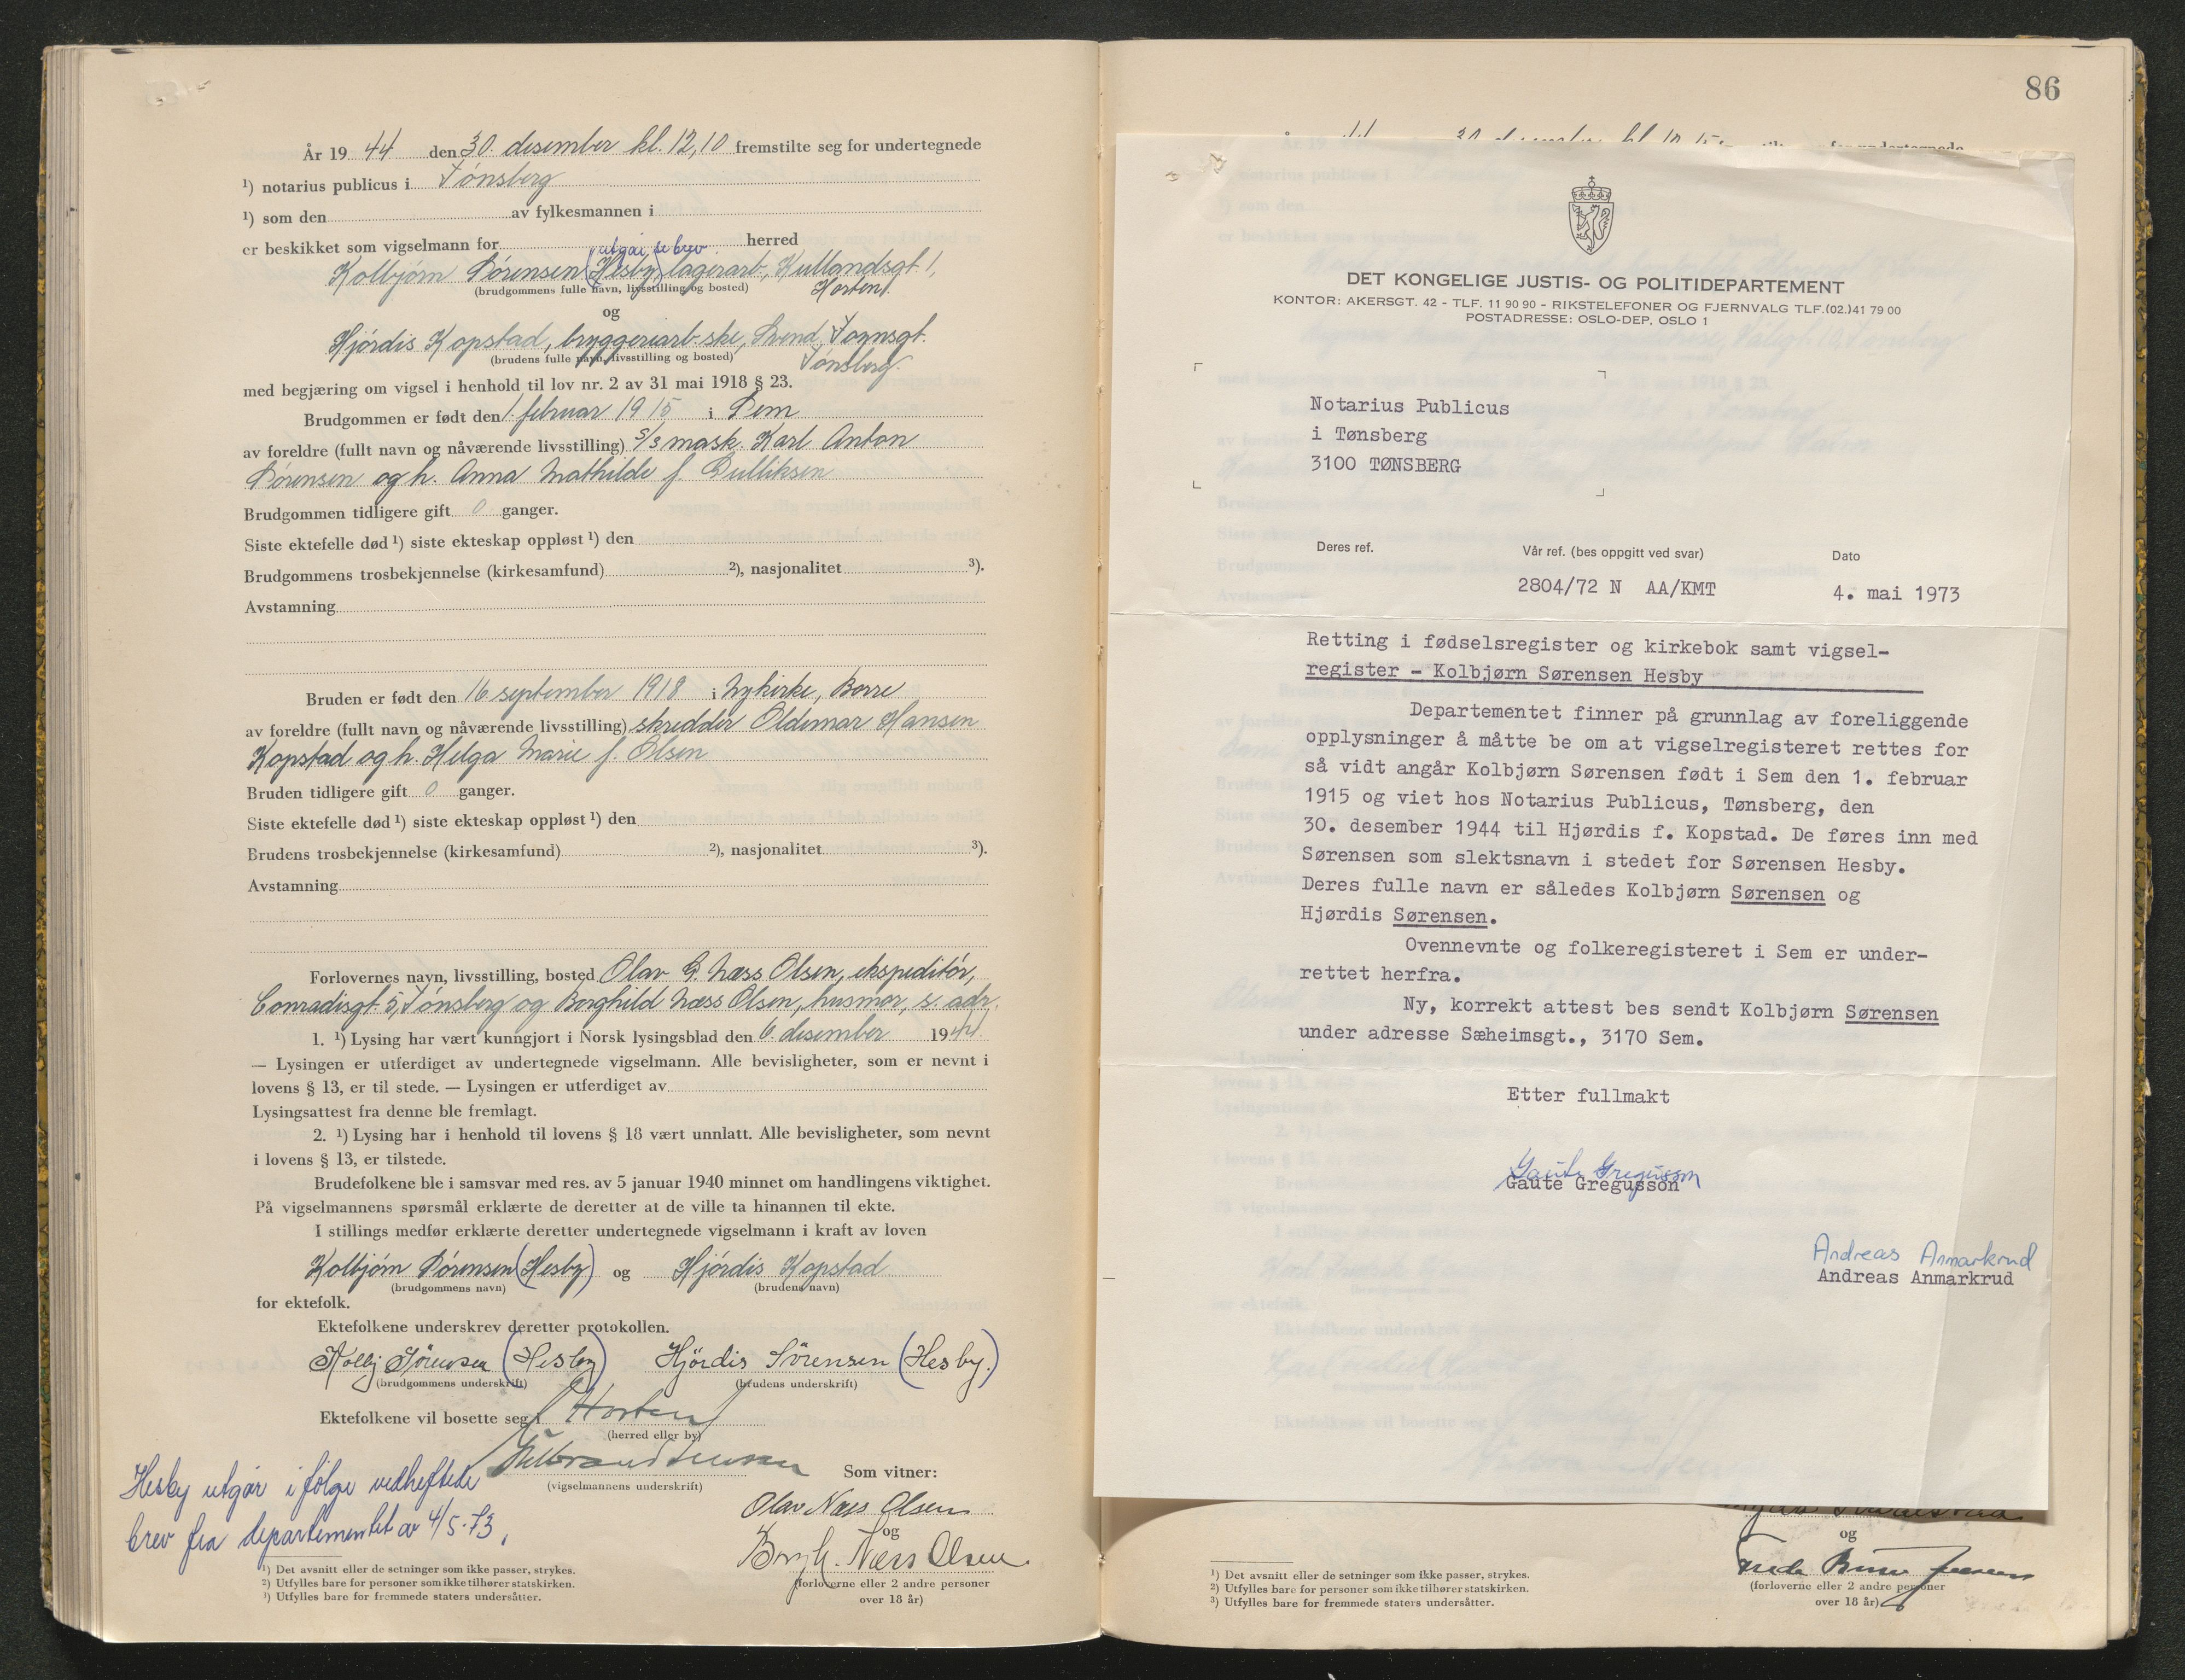 År 19 44 den 30. desember kl. 12,10 fremstilte seg for undertegnede
¹) notarius publicus i Tønsberg
¹) som den av fylkesmannen i
er beskikket som vigselmann for herred
utgår, se brev
Kolbjørn Sørensen (Hesby) lagerarb., Kullandsgt 1,
(brudgommens fulle navn, livsstilling og bosted) Horten.
og
Hjørdis Kopstad, bryggeriarb-ske, Svend Foynsgt.
(brudens fulle navn, livsstilling og bosted) Tønsberg.
med begjæring om vigsel i henhold til lov nr. 2 av 31 mai 1918 § 23.
Brudgommen er født den 1. februar 1915 i Sem
av foreldre (fullt navn og nåværende livsstilling) s/s mask. Karl Anton
Sørensen og h. Anna Mathilde f. Bulliksen
Brudgommen tidligere gift 0 ganger.
Siste ektefelle død ¹) siste ekteskap oppløst ¹) den
Brudgommens trosbekjennelse (kirkesamfund) ²), nasjonalitet ³).
Avstamning
Bruden er født den 16. september 1918 i Nykirke, Borre
av foreldre (fullt navn og nåværende livsstilling) skredder Oldemar Hansen
Kopstad og h. Helga Marie f. Olsen
Bruden tidligere gift 0 ganger.
Siste ektefelle død ¹) siste ekteskap oppløst ¹) den
Brudens trosbekjennelse (kirkesamfund) ²), nasjonalitet ³).
Avstamning
Forlovernes navn, livsstilling, bosted Olav G. Næss Olsen, ekspeditør,
Conradisgt. 5, Tønsberg og Borghild Næss Olsen, husmor, s. adr.
1. ¹) Lysing har vært kunngjort i Norsk lysingsblad den 6. desember 1944.
— Lysingen er utferdiget av undertegnede vigselmann. Alle bevisligheter, som er nevnt i
lovens § 13, er til stede. — Lysingen er utferdiget av
Lysingsattest fra denne ble fremlagt.
2. ¹) Lysing har i henhold til lovens § 18 vært unnlatt. Alle bevisligheter, som nevnt
i lovens § 13, er tilstede.
Brudefolkene ble i samsvar med res. av 5 januar 1940 minnet om handlingens viktighet.
På vigselmannens spørsmål erklærte de deretter at de ville ta hinannen til ekte.
I stillings medfør erklærte deretter undertegnede vigselmann i kraft av loven
Kolbjørn Sørensen (Hesby) og Hjørdis Kopstad
(brudgommens navn) (brudens navn)
for ektefolk.
Ektefolkene underskrev deretter protokollen.
Kolbj Sørensen (Hesby) Hjördis Sörensen (Hesby.)
(brudgommens underskrift) (brudens underskrift)
Ektefolkene vil bosette seg i Horten
(herred eller by)
(vigselmannens underskrift)
Som vitner:
Hesby utgår i følge vedheftede
brev fra departementet av 4/5-73.
Olav Næss Olsen
og
Borgh. Næss Olsen.
(forloverne eller 2 andre personer
over 18 år)
¹) Det avsnitt eller de setninger som ikke passer, strykes.
²) Utfylles bare for personer som ikke tilhører statskirken.
³) Utfylles bare for fremmede staters undersåtter.
86
DET KONGELIGE JUSTIS- OG POLITIDEPARTEMENT
KONTOR: AKERSGT. 42 - TLF. 11 90 90 - RIKSTELEFONER OG FJERNVALG TLF.(02.)41 79 00
POSTADRESSE: OSLO-DEP, OSLO 1
Notarius Publicus
i Tønsberg
3100 TØNSBERG
Deres ref. Vår ref. (bes oppgitt ved svar) Dato
2804/72 N AA/KMT 4. mai 1973
Retting i fødselsregister og kirkebok samt vigsel-
register - Kolbjørn Sørensen Hesby
Departementet finner på grunnlag av foreliggende
opplysninger å måtte be om at vigselregisteret rettes for
så vidt angår Kolbjørn Sørensen født i Sem den 1. februar
1915 og viet hos Notarius Publicus, Tønsberg, den
30. desember 1944 til Hjørdis f. Kopstad. De føres inn med
Sørensen som slektsnavn i stedet for Sørensen Hesby.
Deres fulle navn er således Kolbjørn Sørensen og
Hjørdis Sørensen.
Ovennevnte og folkeregisteret i Sem er under-
rettet herfra.
Ny, korrekt attest bes sendt Kolbjørn Sørensen
under adresse Sæheimsgt., 3170 Sem.
Etter fullmakt
Gaute Gregusson
Gaute Gregusson
Andreas Anmarkrud
Andreas Anmarkrud
og
(forloverne eller 2 andre personer
over 18 år)
¹) Det avsnitt eller de setninger som ikke passer, strykes.
²) Utfylles bare for personer som ikke tilhører statskirken.
³) Utfylles bare for fremmede staters undersåtter.